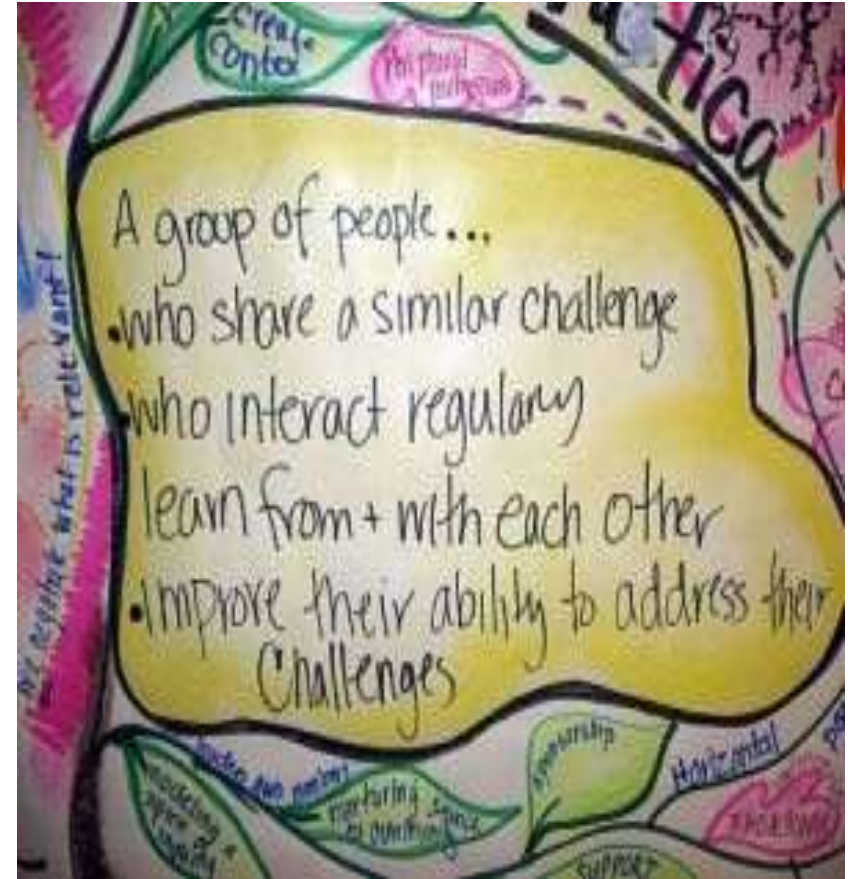 create
contex
tica
A group of people...
•who share a similar challenge
•who interact regularly
learn from + with each other
•improve their ability to address their
Challenges
negotiate what is relevant!
modeling a
spirit of
inquiry
nurturing
sponsorship
Horizontal
SUPPORT